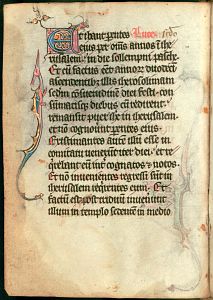 Et ibant parentes Luce
eius per om̄s annos i ihe
rusalem in die sollempni pasche
Et cū factus eēt annoꝝ duodeci
ascendentib; illis iherosolimam
sedm̄ cōsuetudinē diei festi con
sumatisq; diebus cū redirent
remansit puer ihc in iherusalem
et nō cognouerūt parentes eius
Existimantes autē illū esse in
comitatu venerūt iter diei et re
q̄rebant eū int̄ cognatos & notos
Et nō inuenientes regressi sūt in
iherusalem reqrentes eum Et
factū est post triduū inuenerūt
illum in templo sedentē in medio